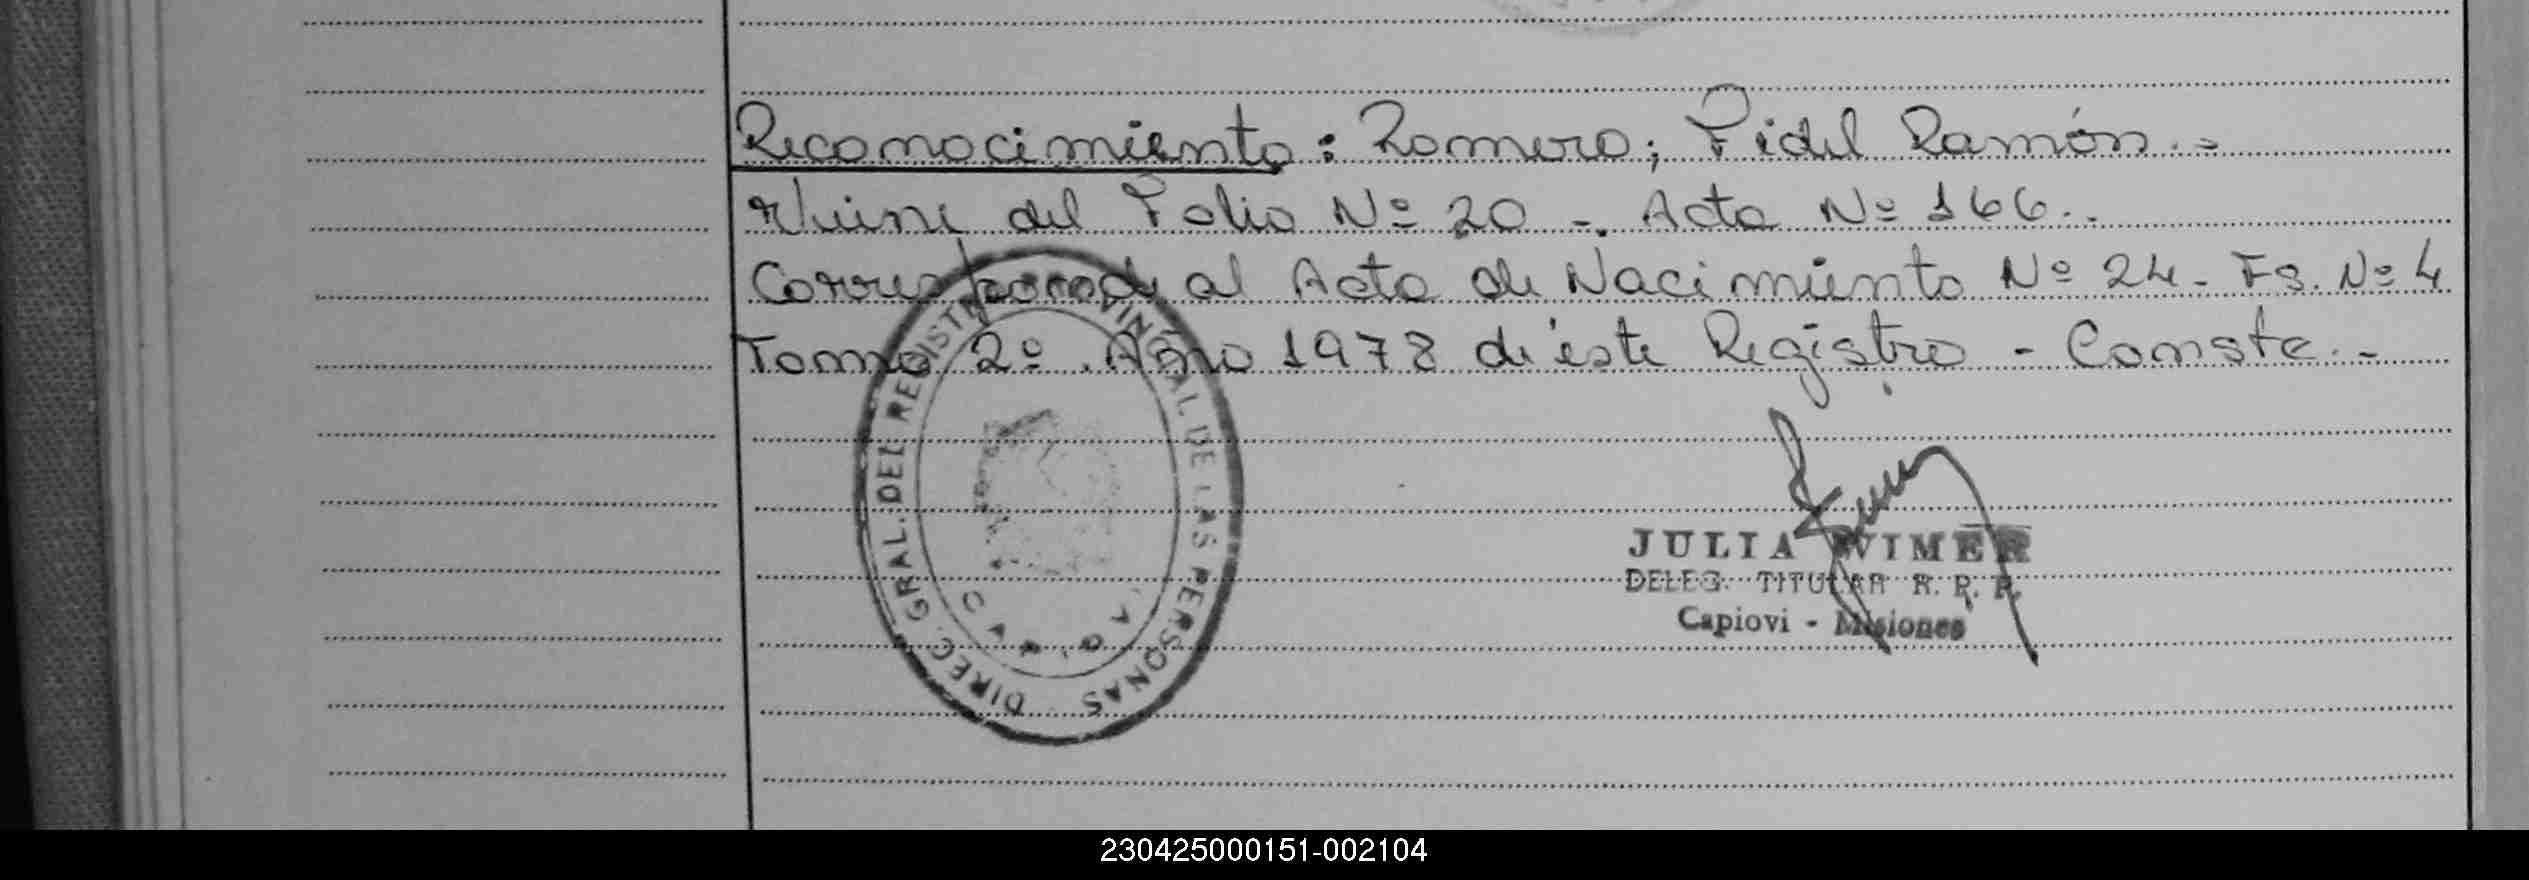 Reconocimiento: Romero; Fidel Ramón.-
Viene del Folio Nº 20 -. Acta Nº 166.-
Corresponde al Acta de Nacimiento Nº 24 - Fs. Nº 4
Tomo 2º. Año 1978 de éste Registro - Conste.-
DIREC. GRAL. DEL REGISTRO PROVINCIAL DE LAS PERSONAS
JULIA WIMER
DELEG. TITULAR R. P. P.
Capiovi - Misiones
230425000151-002104